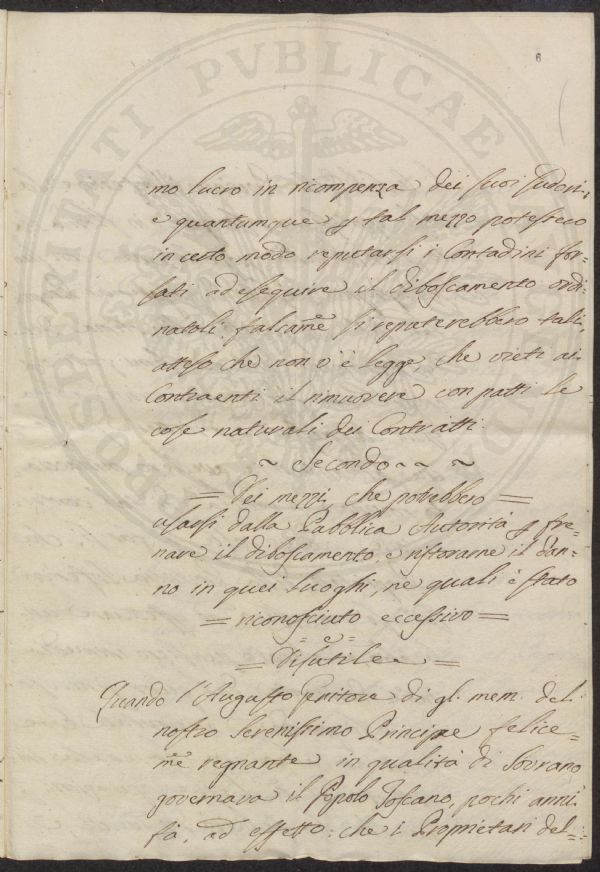 6
PROSPERITATI PVBLICAE
mo lucro in ricompenza dei suoi sudori,
e quantumque p tal mezzo potessero
in certo modo reputarsi i Contadini for=
sati ad eseguire il diboscamento ordi=
natoli falsamẽ si reputerebbero tali,
atteso che non v'è legge, che vieti ai
Contraenti il rimuovere con patti le
cose naturali dei Contratti
~ Secondo ~ ~ ~
= Dei mezzi, che potrebbero =
usarsi dalla Pubblica Autorità p fre=
nare il diboscamento, e ristorarne il dan=
no in quei Luoghi, ne quali è stato
= riconosciuto eccessivo =
= e =
= Disutile =
Quando l'Augusto Genitore di gl. mem. del
nostro Serenissimo Principe felice=
mẽ regnante in qualità di Sovrano
governava il Popolo Toscano, pochi anni
fà, ad effetto: che i Proprietari del=